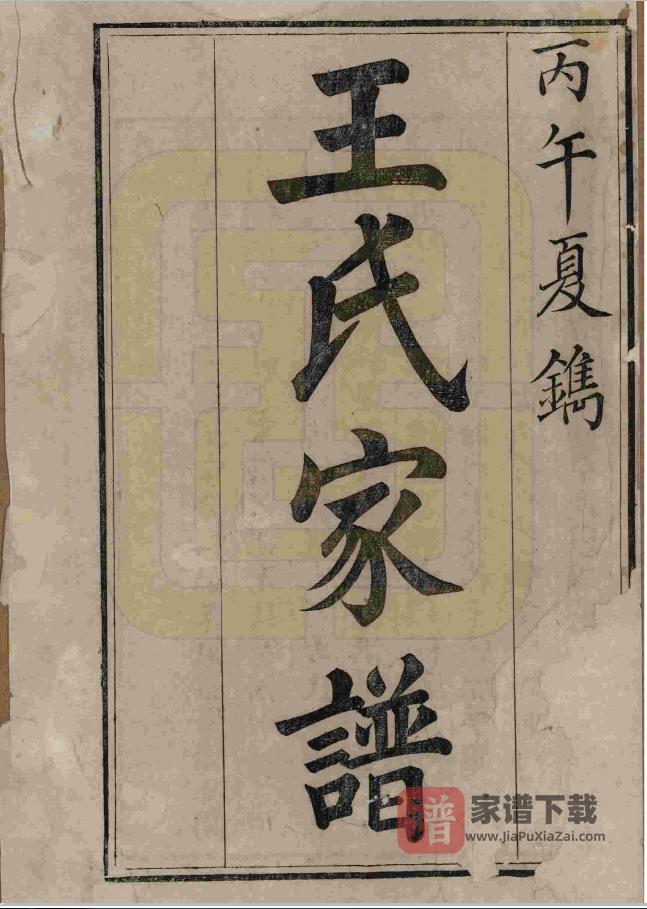 丙午夏鐫
王氏家譜
普
家谱下载
www.JiaPuXiaZai.com